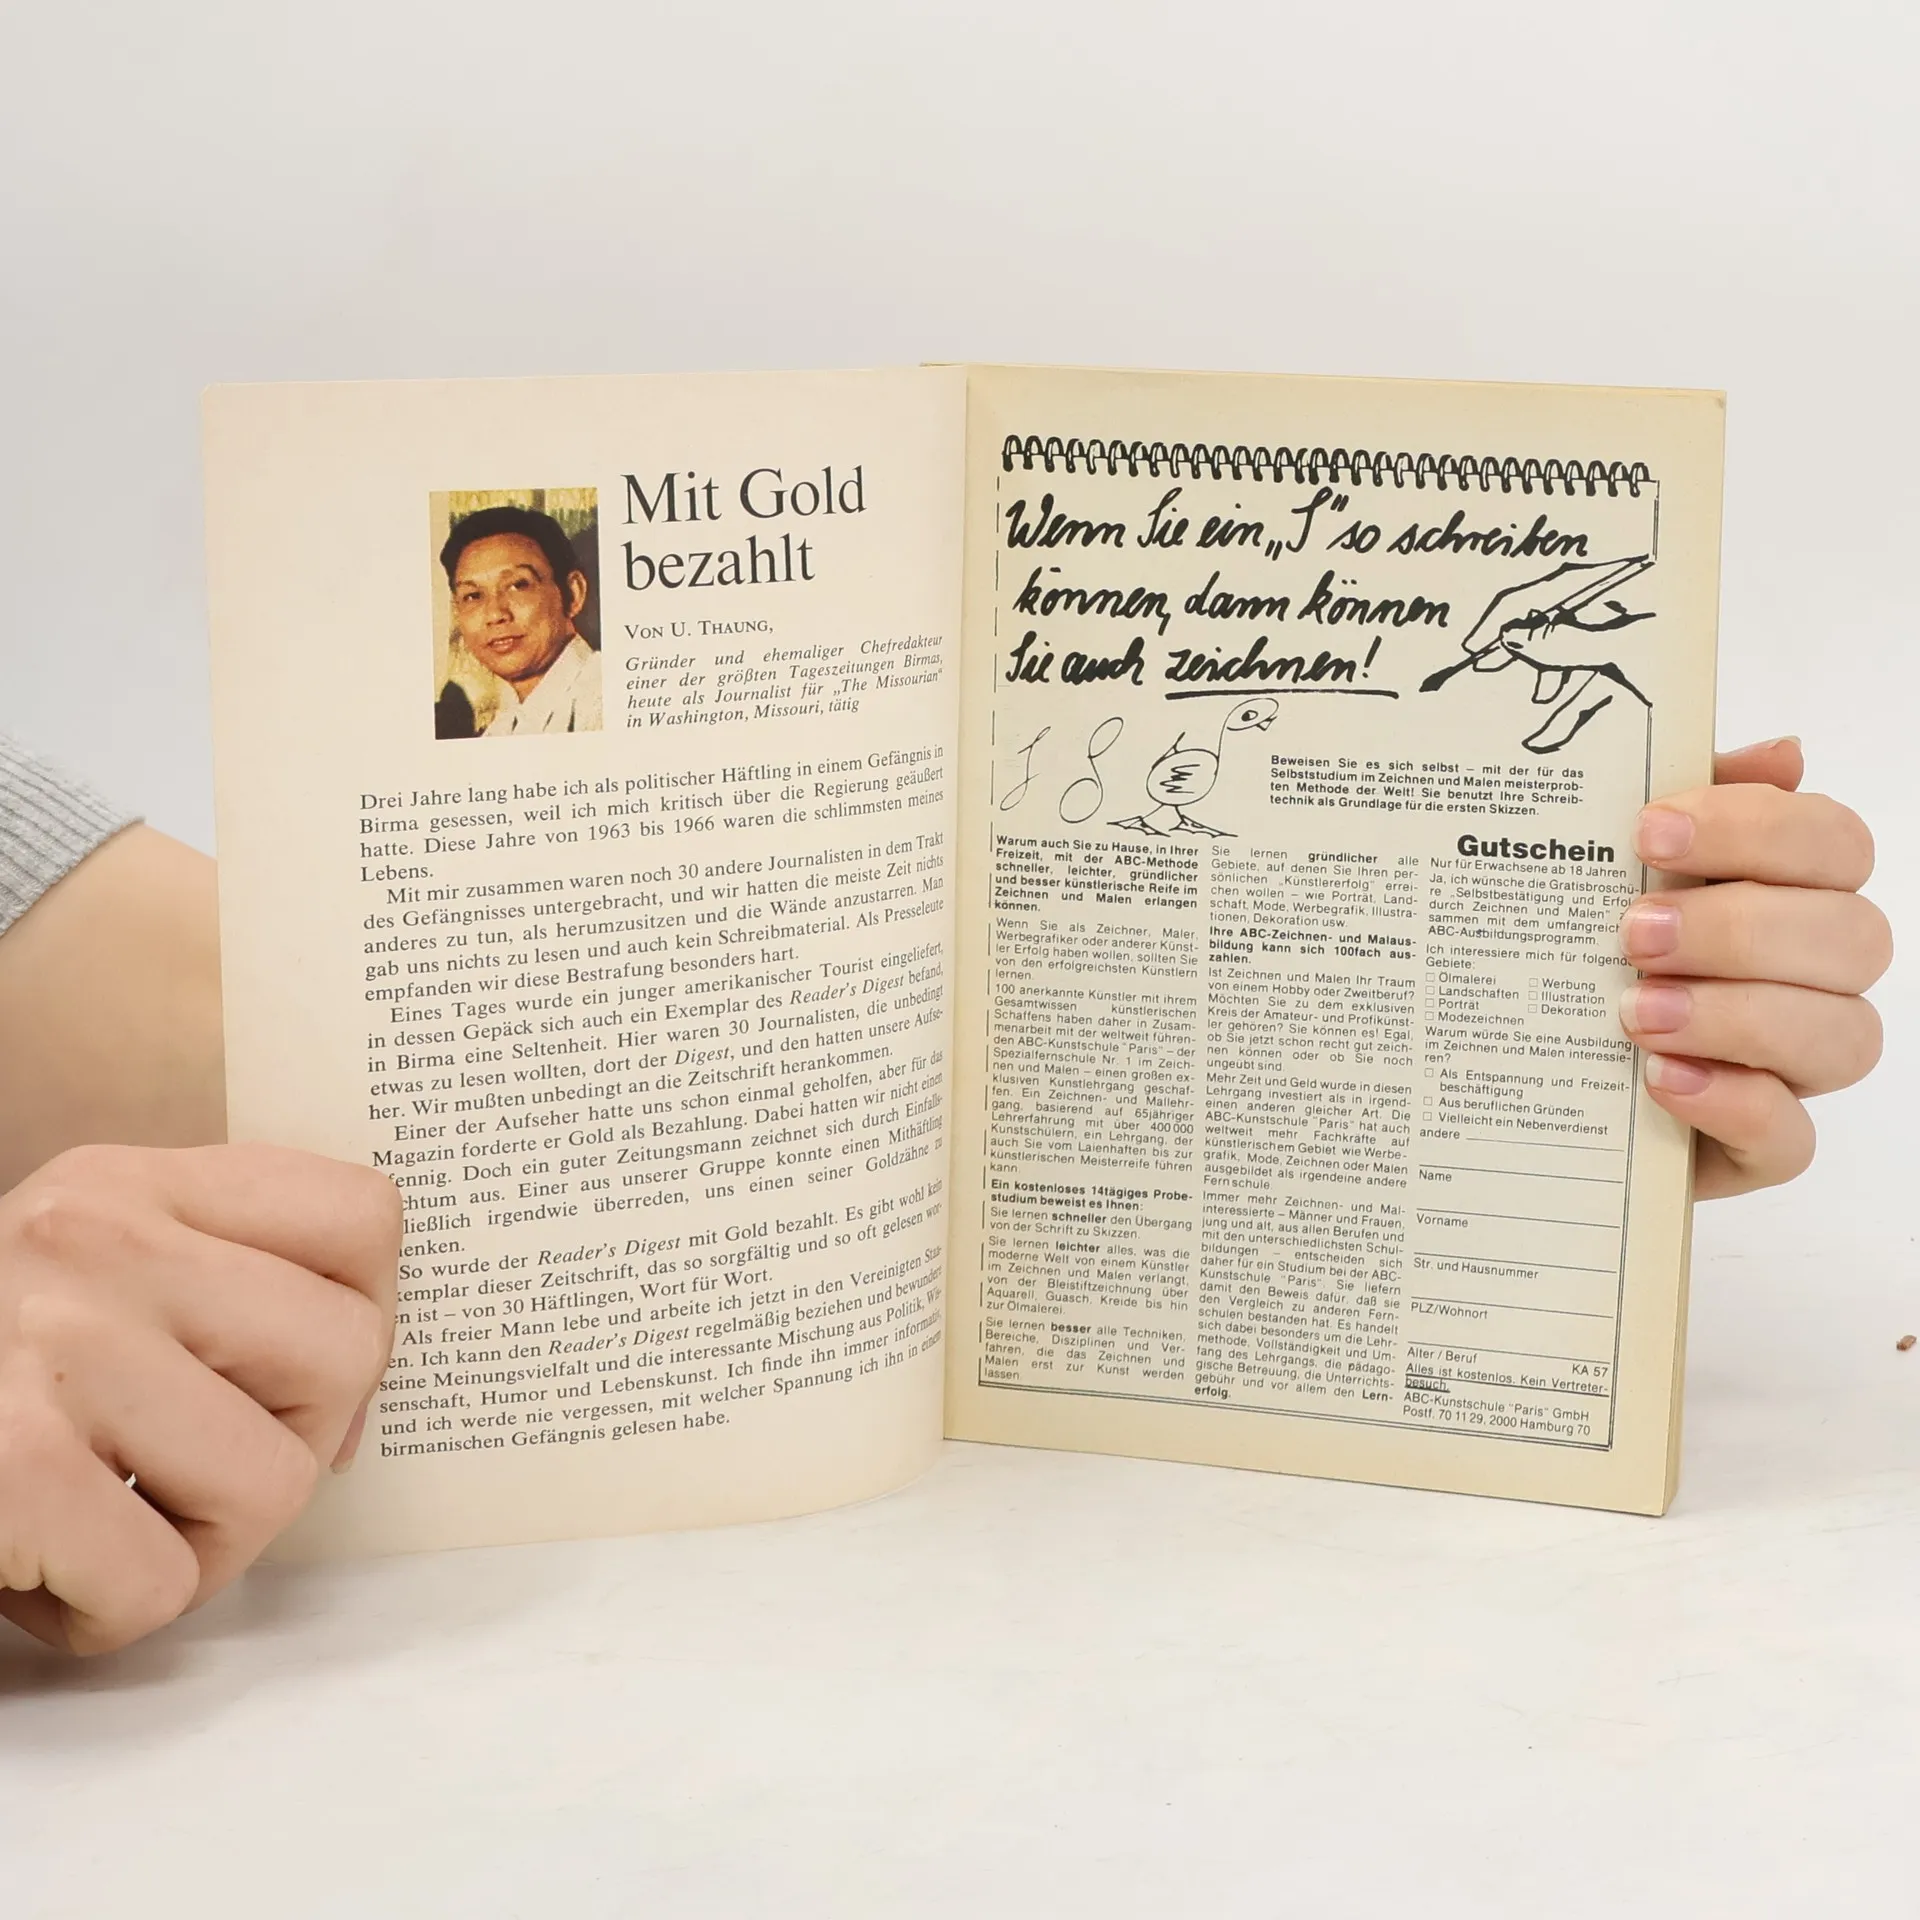 Mit Gold
bezahlt
VON U. THAUNG,
Gründer und ehemaliger Chefredakteur
einer der größten Tageszeitungen Birmas,
heute als Journalist für „The Missourian"
in Washington, Missouri, tätig
Drei Jahre lang habe ich als politischer Häftling in einem Gefängnis in
Birma gesessen, weil ich mich kritisch über die Regierung geäußert
hatte. Diese Jahre von 1963 bis 1966 waren die schlimmsten meines
Lebens.
Mit mir zusammen waren noch 30 andere Journalisten in dem Trakt
des Gefängnisses untergebracht, und wir hatten die meiste Zeit nichts
anderes zu tun, als herumzusitzen und die Wände anzustarren. Man
gab uns nichts zu lesen und auch kein Schreibmaterial. Als Presseleute
empfanden wir diese Bestrafung besonders hart.
Eines Tages wurde ein junger amerikanischer Tourist eingeliefert,
in dessen Gepäck sich auch ein Exemplar des Reader's Digest befand,
in Birma eine Seltenheit. Hier waren 30 Journalisten, die unbedingt
etwas zu lesen wollten, dort der Digest, und den hatten unsere Aufse-
her. Wir mußten unbedingt an die Zeitschrift herankommen.
Einer der Aufseher hatte uns schon einmal geholfen, aber für das
Magazin forderte er Gold als Bezahlung. Dabei hatten wir nicht einen
fennig. Doch ein guter Zeitungsmann zeichnet sich durch Einfalls-
chtum aus. Einer aus unserer Gruppe konnte einen Mithäftling
ließlich irgendwie überreden, uns einen seiner Goldzähne zu
enken.
So wurde der Reader's Digest mit Gold bezahlt. Es gibt wohl kein
xemplar dieser Zeitschrift, das so sorgfältig und so oft gelesen wor-
en ist – von 30 Häftlingen, Wort für Wort.
Als freier Mann lebe und arbeite ich jetzt in den Vereinigten Staa-
en. Ich kann den Reader's Digest regelmäßig beziehen und bewundert
seine Meinungsvielfalt und die interessante Mischung aus Politik, Wis-
senschaft, Humor und Lebenskunst. Ich finde ihn immer informativ,
und ich werde nie vergessen, mit welcher Spannung ich ihn in einem
birmanischen Gefängnis gelesen habe.
Wenn Sie ein „S" so schreiben
können, dann können
Sie auch zeichnen!
Beweisen Sie es sich selbst – mit der für das
Selbststudium im Zeichnen und Malen meisterprob-
ten Methode der Welt! Sie benutzt Ihre Schreib-
technik als Grundlage für die ersten Skizzen.
Warum auch Sie zu Hause, in Ihrer
Freizeit, mit der ABC-Methode
schneller, leichter, gründlicher
und besser künstlerische Reife im
Zeichnen und Malen erlangen
können.
Wenn Sie als Zeichner, Maler,
Werbegrafiker oder anderer Künst-
ler Erfolg haben wollen, sollten Sie
von den erfolgreichsten Künstlern
lernen.
100 anerkannte Künstler mit ihrem
Gesamtwissen künstlerischen
Schaffens haben daher in Zusam-
menarbeit mit der weltweit führen-
den ABC-Kunstschule "Paris" – der
Spezialfernschule Nr. 1 im Zeich-
nen und Malen – einen großen ex-
klusiven Kunstlehrgang geschaf-
fen. Ein Zeichnen- und Mallehr-
gang, basierend auf 65jähriger
Lehrerfahrung mit über 400 000
Kunstschülern, ein Lehrgang, der
auch Sie vom Laienhaften bis zur
künstlerischen Meisterreife führen
kann.
Ein kostenloses 14tägiges Probe-
studium beweist es Ihnen:
Sie lernen schneller den Übergang
von der Schrift zu Skizzen.
Sie lernen leichter alles, was die
moderne Welt von einem Künstler
im Zeichnen und Malen verlangt,
von der Bleistiftzeichnung über
Aquarell, Guasch, Kreide bis hin
zur Ölmalerei.
Sie lernen besser alle Techniken,
Bereiche, Disziplinen und Ver-
fahren, die das Zeichnen und
Malen erst zur Kunst werden
lassen.
Sie lernen gründlicher alle
Gebiete, auf denen Sie Ihren per-
sönlichen „Künstlererfolg" errei-
chen wollen – wie Porträt, Land-
schaft, Mode, Werbegrafik, Illustra-
tionen, Dekoration usw.
Ihre ABC-Zeichnen- und Malaus-
bildung kann sich 100fach aus-
zahlen.
Ist Zeichnen und Malen Ihr Traum
von einem Hobby oder Zweitberuf?
Möchten Sie zu dem exklusiven
Kreis der Amateur- und Profikünst-
ler gehören? Sie können es! Egal,
ob Sie jetzt schon recht gut zeich-
nen können oder ob Sie noch
ungeübt sind.
Mehr Zeit und Geld wurde in diesen
Lehrgang investiert als in irgend-
einen anderen gleicher Art. Die
ABC-Kunstschule "Paris" hat auch
weltweit mehr Fachkräfte auf
künstlerischem Gebiet wie Werbe-
grafik, Mode, Zeichnen oder Malen
ausgebildet als irgendeine andere
Fernschule.
Immer mehr Zeichnen- und Mal-
interessierte – Männer und Frauen,
jung und alt, aus allen Berufen und
mit den unterschiedlichsten Schul-
bildungen – entscheiden sich
daher für ein Studium bei der ABC-
Kunstschule "Paris". Sie liefern
damit den Beweis dafür, daß sie
den Vergleich zu anderen Fern-
schulen bestanden hat. Es handelt
sich dabei besonders um die Lehr-
methode, Vollständigkeit und Um-
fang des Lehrgangs, die pädago-
gische Betreuung, die Unterrichts-
gebühr und vor allem den Lern-
erfolg.
Gutschein
Nur für Erwachsene ab 18 Jahren
Ja, ich wünsche die Gratisbroschü-
re „Selbstbestätigung und Erfol
durch Zeichnen und Malen" z
sammen mit dem umfangreich
ABC-Ausbildungsprogramm.
Ich interessiere mich für folgend
Gebiete:
□ Ölmalerei □ Werbung
□ Landschaften □ Illustration
□ Porträt □ Dekoration
□ Modezeichnen
Warum würde Sie eine Ausbildung
im Zeichnen und Malen interessie-
ren?
□ Als Entspannung und Freizeit-
beschäftigung
□ Aus beruflichen Gründen
□ Vielleicht ein Nebenverdienst
andere
Name
Vorname
Str. und Hausnummer
PLZ/Wohnort
Alter / Beruf KA 57
Alles ist kostenlos. Kein Vertreter-
besuch.
ABC-Kunstschule "Paris" GmbH
Postf. 70 11 29, 2000 Hamburg 70